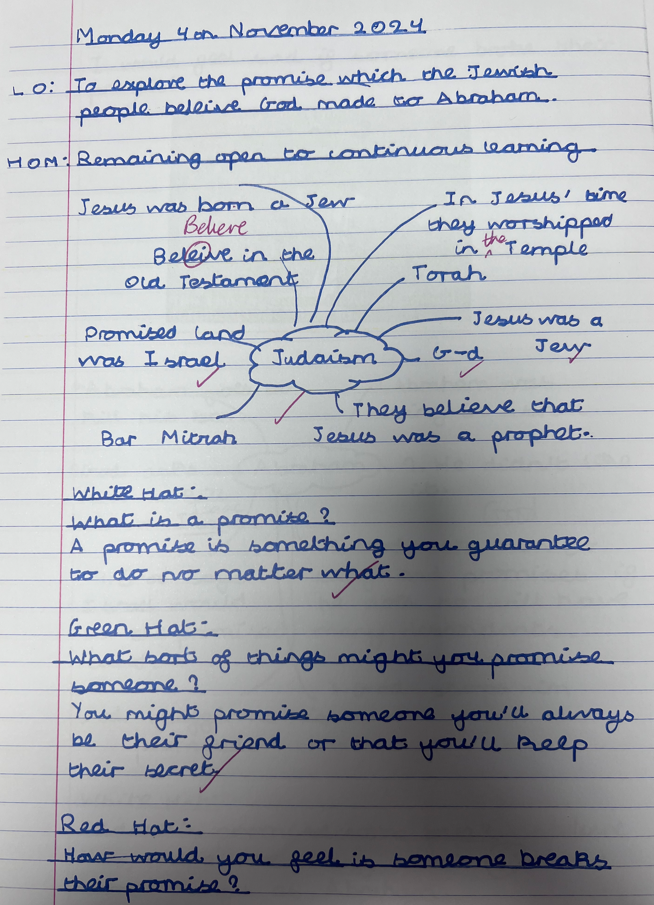 Monday 4th November 2024
LO: To explore the promise which the Jewish
people beleive God made to Abraham.
HOM: Remaining open to continuous learning
Jesus was born a Jew
Believe
Beleive in the
Old Testament
In Jesus' time
they worshipped
in the Temple
Torah
Jesus was a
Jew
Promised land
was Israel
Judaism
G-d
They believe that
Jesus was a prophet.
Bar Mitzah
White Hat:-
What is a promise?
A promise is something you guarantee
to do no matter what.
Green Hat:-
What sorts of things might you promise
someone?
You might promise someone you'll always
be their friend or that you'll keep
their secret
Red Hat:-
How would you feel is someone breaks
their promise?